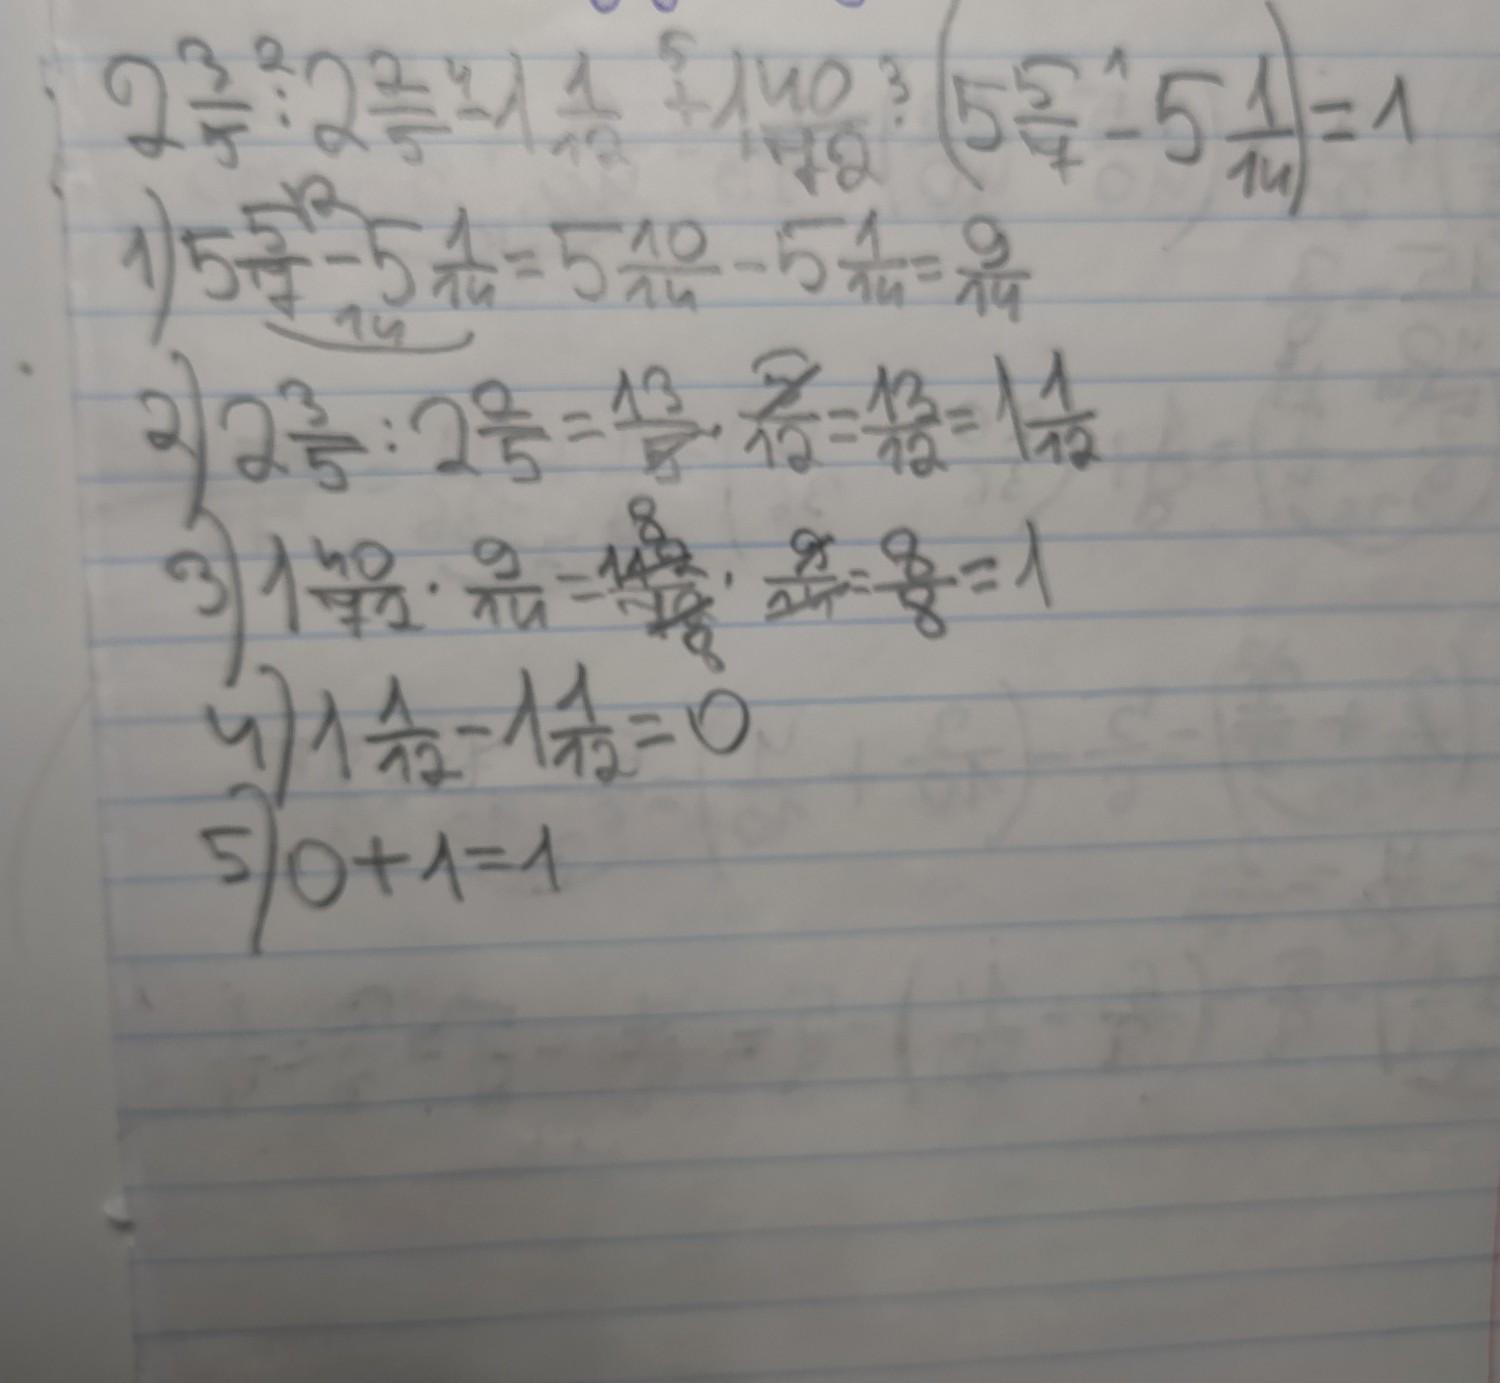 2 3/5 : 2 2/5 - 1 1/12 + 1 40/72 : (5 5/7 - 5 1/14) = 1
1) 5 5/7 - 5 1/14 = 5 10/14 - 5 1/14 = 9/14
14
2) 2 3/5 : 2 2/5 = 13/5 · 5/12 = 13/12 = 1 1/12
3) 1 40/72 · 9/14 = 112/72 · 9/14 = 8/8 = 1
4) 1 1/12 - 1 1/12 = 0
5) 0 + 1 = 1